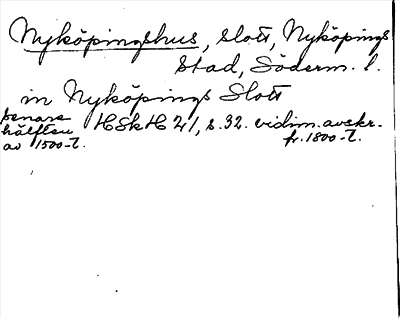 Nyköpingshus, slott, Nyköpings
stad, Söderm. l.
in Nyköpings Slott
senare
hälften HSkH 21, s. 32. vidim. avskr.
av 1500-t. fr. 1800-t.